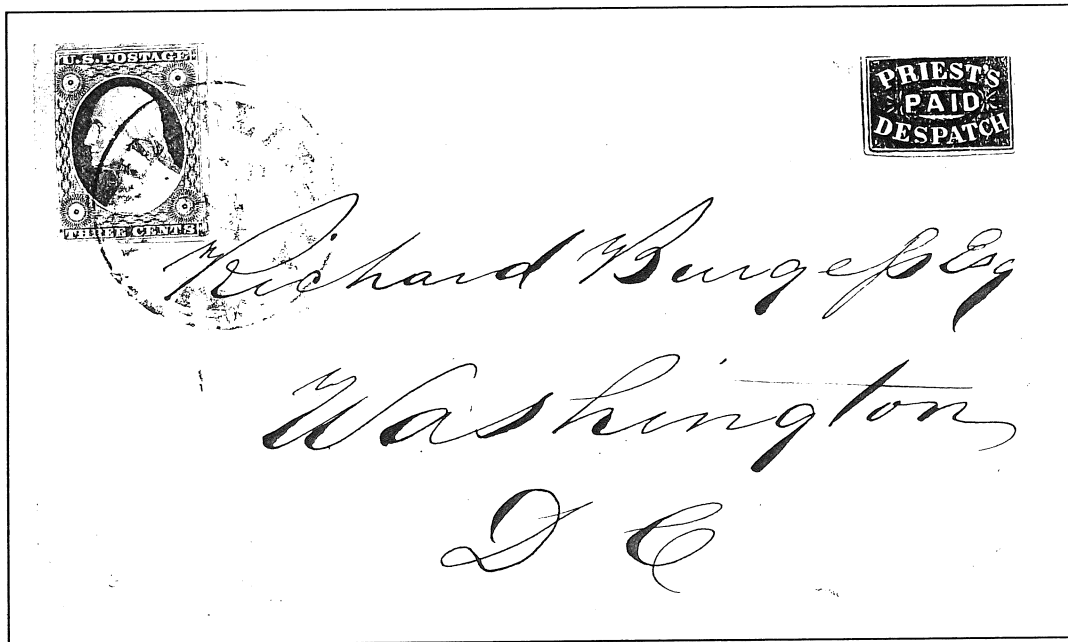 U.S. POSTAGE
THREE CENTS
PRIEST'S
PAID
DESPATCH
Richard Burgeſs Esq
Washington
D C